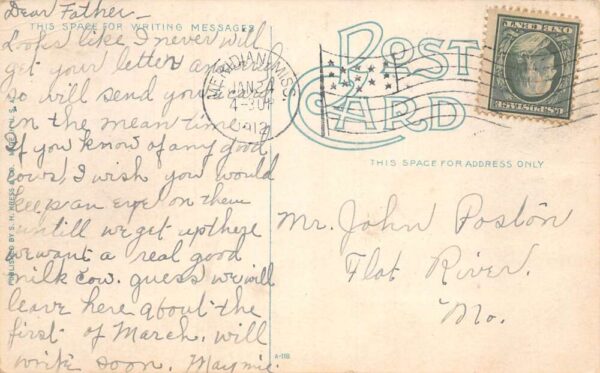 Dear Father—
THIS SPACE FOR WRITING MESSAGES
Looks like I never will
get your letter
so will send you
in the mean time.
If you know of any good
cows, I wish you would
keep an eye on them
untill we get up there
we want a real good
milk cow. guess we will
leave here about the
first of March. will
write soon. Maymie.
PUBLISHED BY S. H. KRESS & CO.
MERIDIAN, MISS.
JAN 24
4-30P
1912
POST
CARD
U.S. POSTAGE
ONE CENT
THIS SPACE FOR ADDRESS ONLY
Mr. John Poston
Flat River.
Mo.